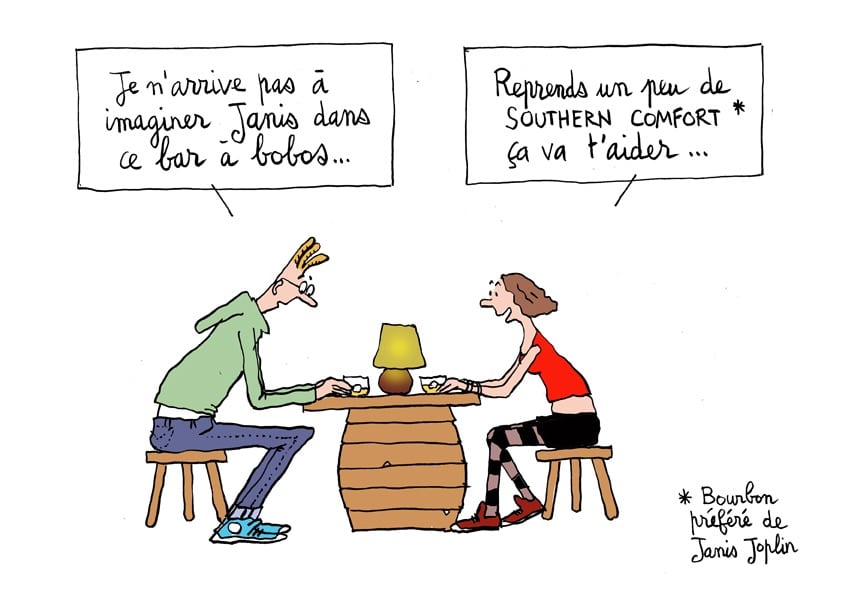 Je n'arrive pas à
imaginer Janis dans
ce bar à bobos...
Reprends un peu de
SOUTHERN COMFORT *
ça va t'aider ...
* Bourbon
préféré de
Janis Joplin